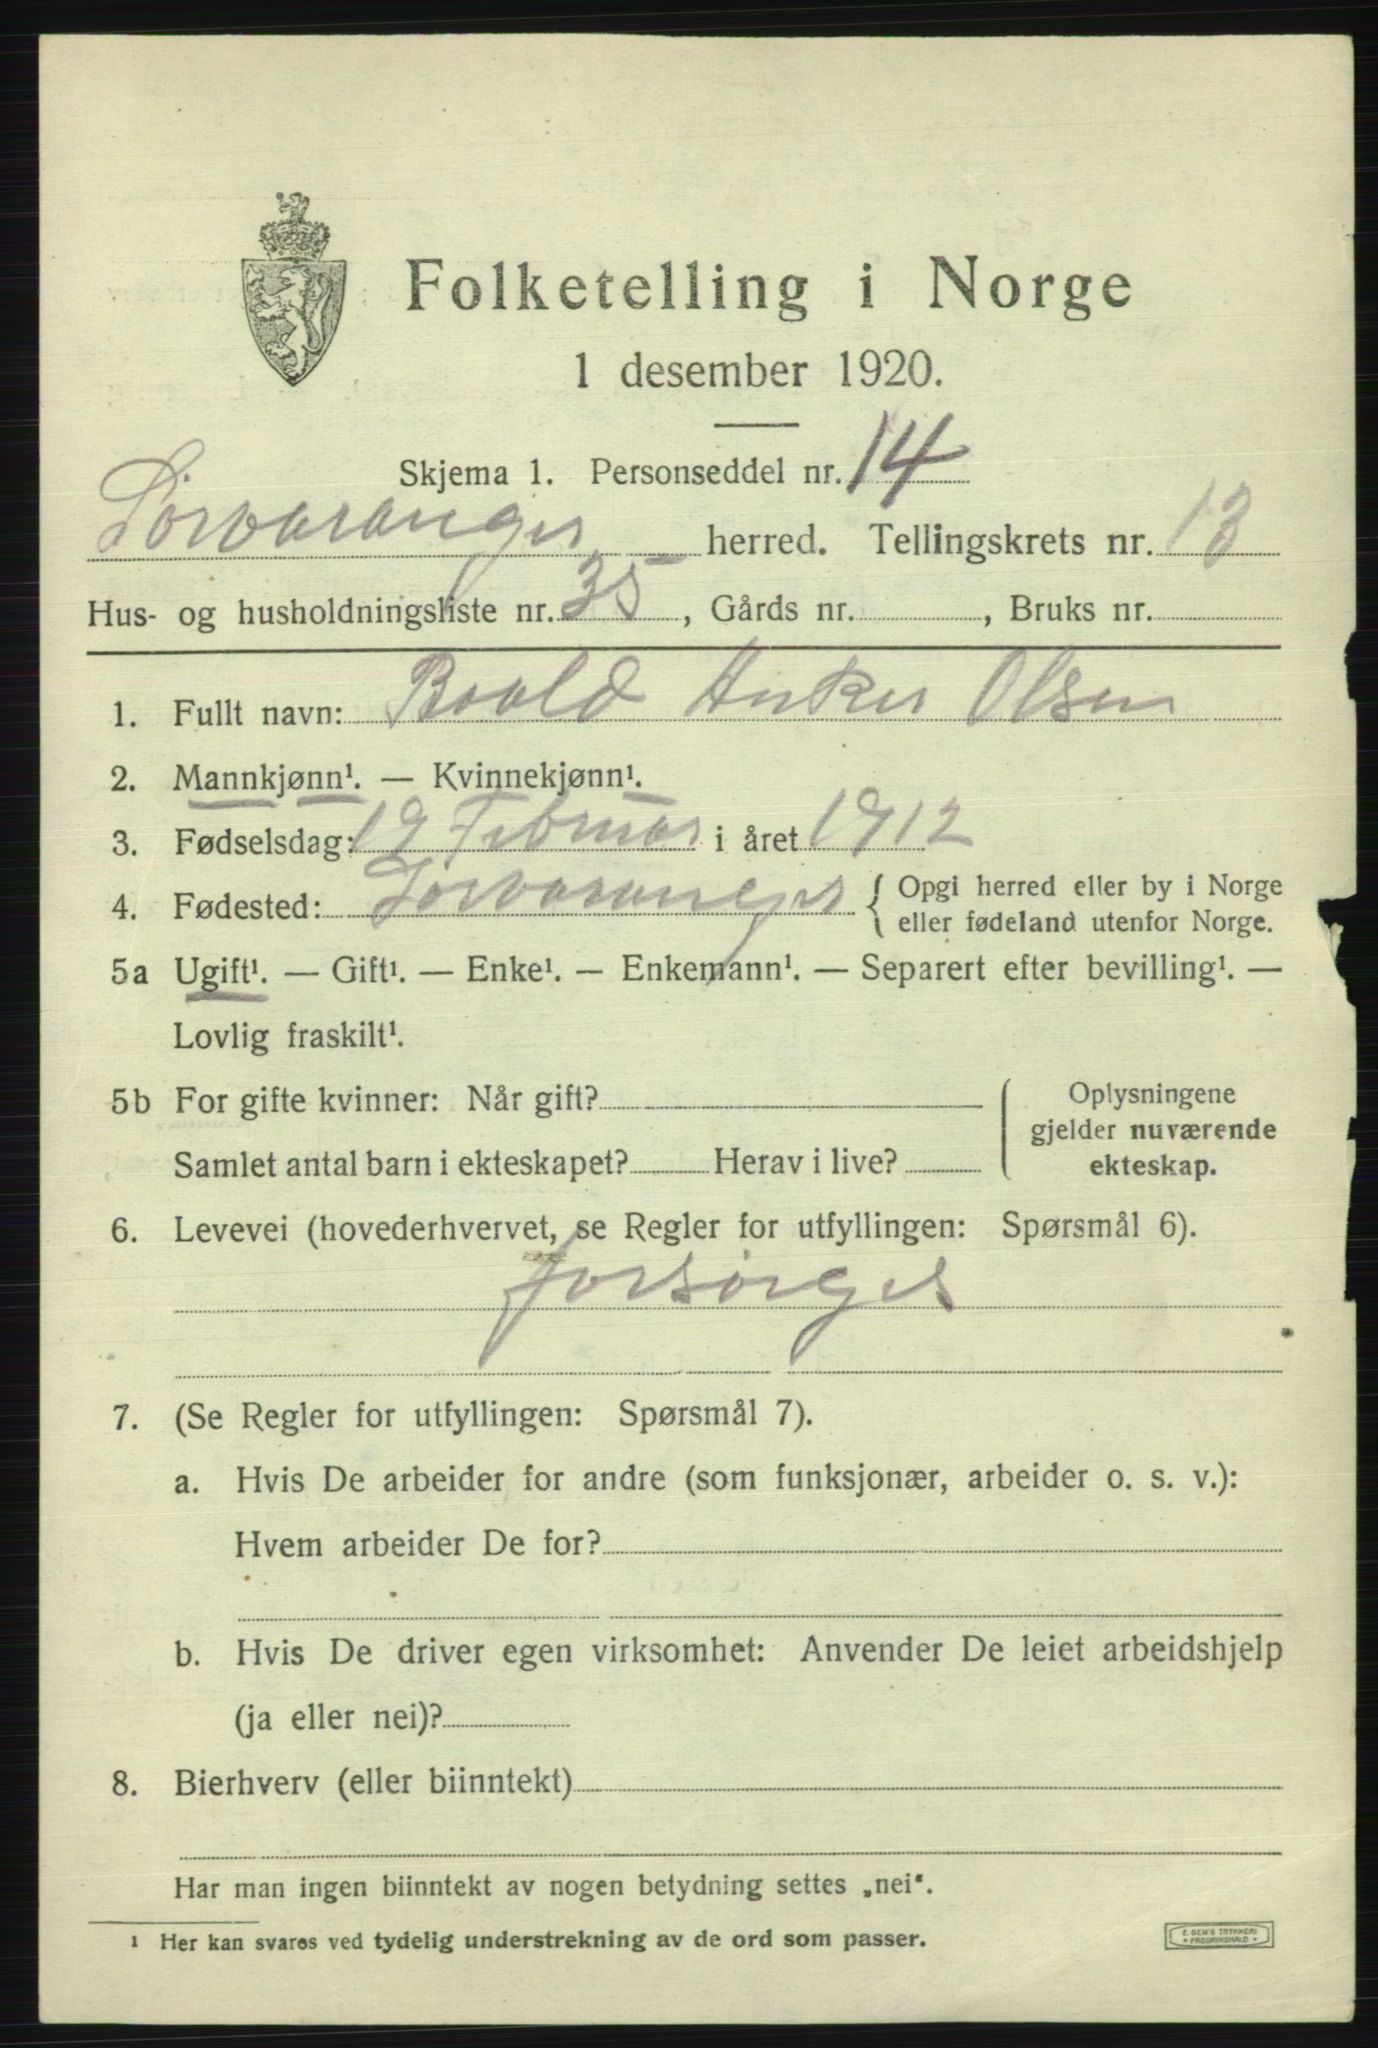 Folketelling i Norge
1 desember 1920.
Skjema 1. Personseddel nr. 14
Sørvaranger herred. Tellingskrets nr. 13
Hus- og husholdningsliste nr. 35, Gårds nr. , Bruks nr.
1. Fullt navn: Roald Anker Olsen
2. Mannkjønn¹. — Kvinnekjønn¹.
3. Fødselsdag: 19 Februar i året 1912
4. Fødested: Sørvaranger { Opgi herred eller by i Norge
eller fødeland utenfor Norge.
5a Ugift¹. — Gift¹. — Enke¹. — Enkemann¹. — Separert efter bevilling¹. —
Lovlig fraskilt¹.
5b For gifte kvinner: Når gift? Oplysningene
gjelder nuværende
Samlet antal barn i ekteskapet? Herav i live? ekteskap.
6. Levevei (hovederhvervet, se Regler for utfyllingen: Spørsmål 6).
forsørges
7. (Se Regler for utfyllingen: Spørsmål 7).
a. Hvis De arbeider for andre (som funksjonær, arbeider o. s. v.):
Hvem arbeider De for?
b. Hvis De driver egen virksomhet: Anvender De leiet arbeidshjelp
(ja eller nei)?
8. Bierhverv (eller biinntekt)
Har man ingen biinntekt av nogen betydning settes „nei“.
¹ Her kan svares ved tydelig understrekning av de ord som passer.
E. SEM'S TRYKKERI
FREDRIKSHALD